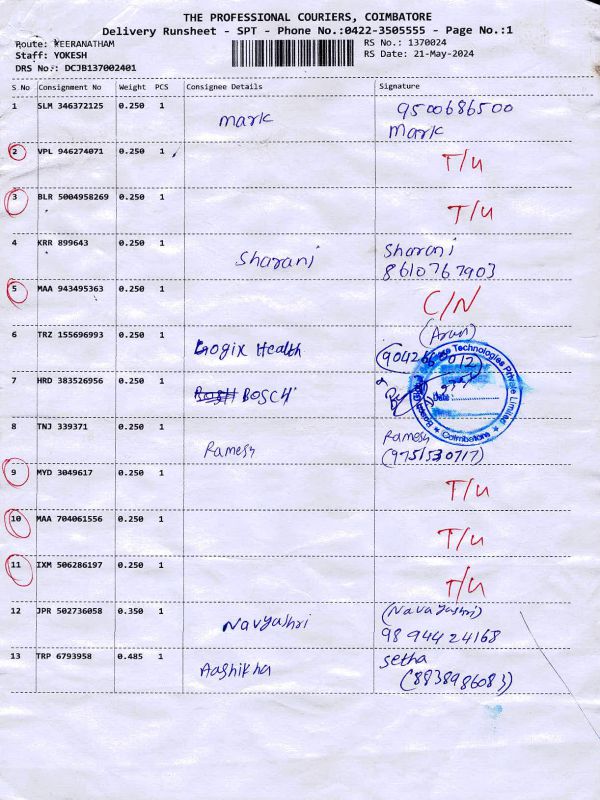 THE PROFESSIONAL COURIERS, COIMBATORE
Delivery Runsheet - SPT - Phone No.:0422-3505555 - Page No.:1
Route: KEERANATHAM
RS No.: 1370024
Staff: YOKESH
RS Date: 21-May-2024
DRS No.: DCJB137002401
S.No Consignment No Weight PCS Consignee Details Signature
1 SLM 346372125 0.250 1 mark 9500686500
mark
2 VPL 946274071 0.250 1 T/U
3 BLR 5004958269 0.250 1 T/U
4 KRR 899643 0.250 1 Sharani Sharani
8610767903
5 MAA 943495363 0.250 1 C/N
6 TRZ 155696993 0.250 1 Logix Health (Arun)
7 HRD 383526956 0.250 1 BOSCH
Technologies Private Limited
Date :
Coimbatore
8 TNJ 339371 0.250 1 Ramesh Ramesh
(9751530717)
9 MYD 3049617 0.250 1 T/U
10 MAA 704061556 0.250 1 T/U
11 IXM 506286197 0.250 1 T/U
12 JPR 502736058 0.350 1 Navyashri (Navayashri)
98 944 24168
13 TRP 6793958 0.485 1 Aashikha Setha
(8838986083)